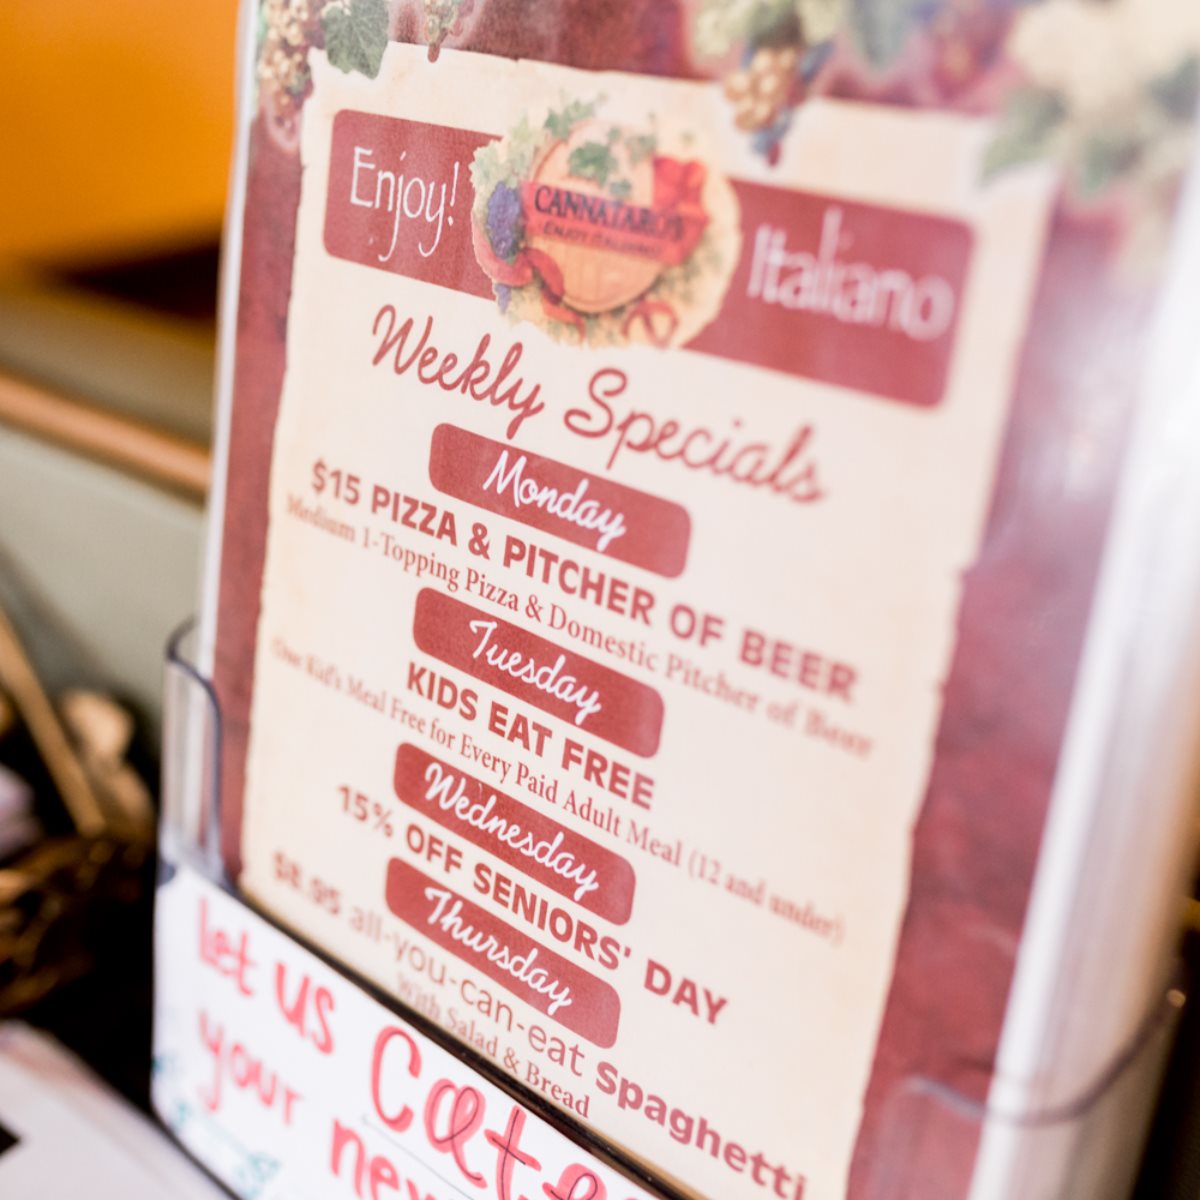 Enjoy!
CANNATARO'S
ENJOY ITALIANO
Italiano
Weekly Specials
Monday
$15 PIZZA & PITCHER OF BEER
Medium 1-Topping Pizza & Domestic Pitcher of Beer
Tuesday
KIDS EAT FREE
One Kid's Meal Free for Every Paid Adult Meal (12 and under)
Wednesday
15% OFF SENIORS' DAY
Thursday
$8.95 all-you-can-eat spaghetti
With Salad & Bread
let us
your